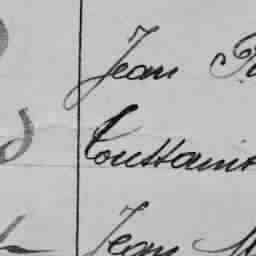 Jean
Toussaint
Jean